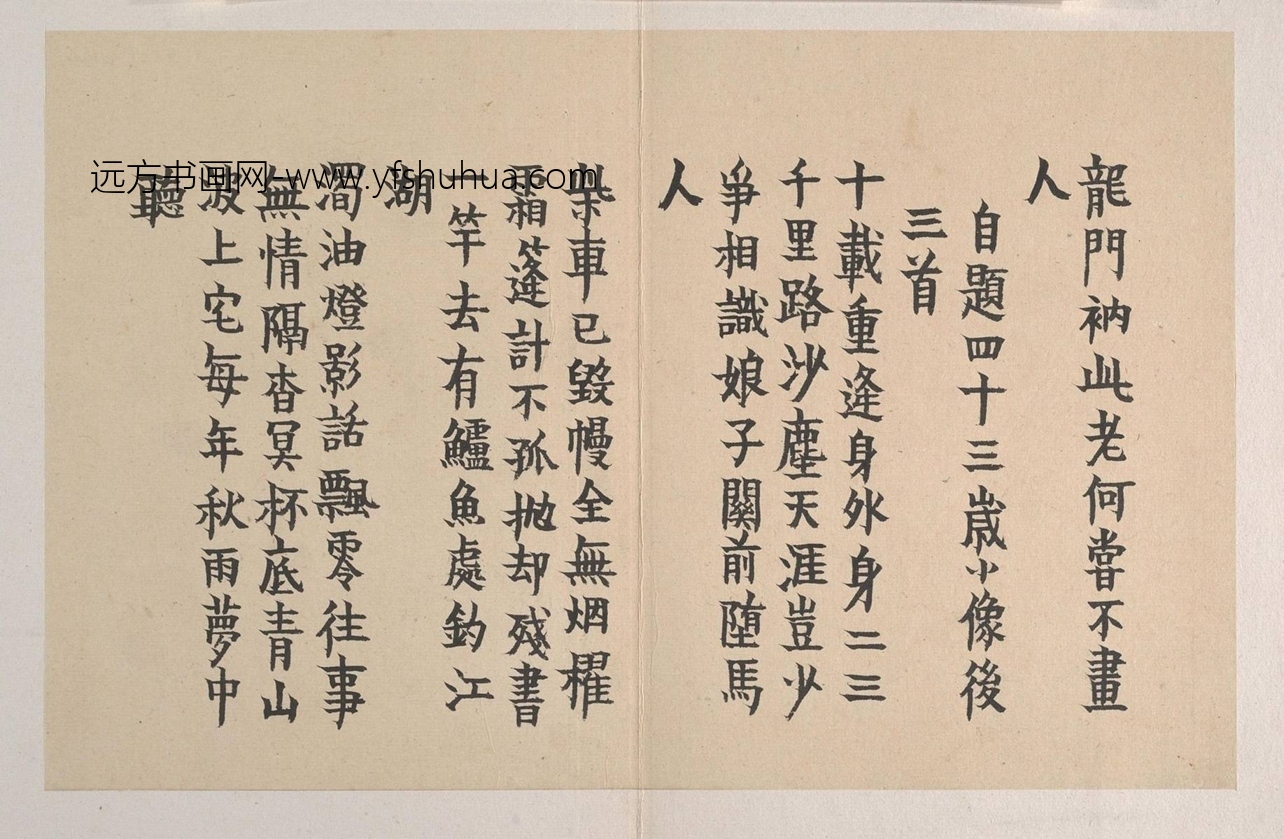 龍門衲此老何嘗不畫
人
自題四十三歲小像後
三首
十載重逢身外身二三
千里路沙塵天涯豈少
爭相識娘子關前墮馬
人
柴車已毀幔全無烟櫂
霜篷計不孤拋却殘書
一竿去有鱸魚處釣江
湖
澗油燈影話飄零往事
無情隔杳冥杯底青山
波上宅每年秋雨夢中
聽
远方书画网-www.yfshuhua.com